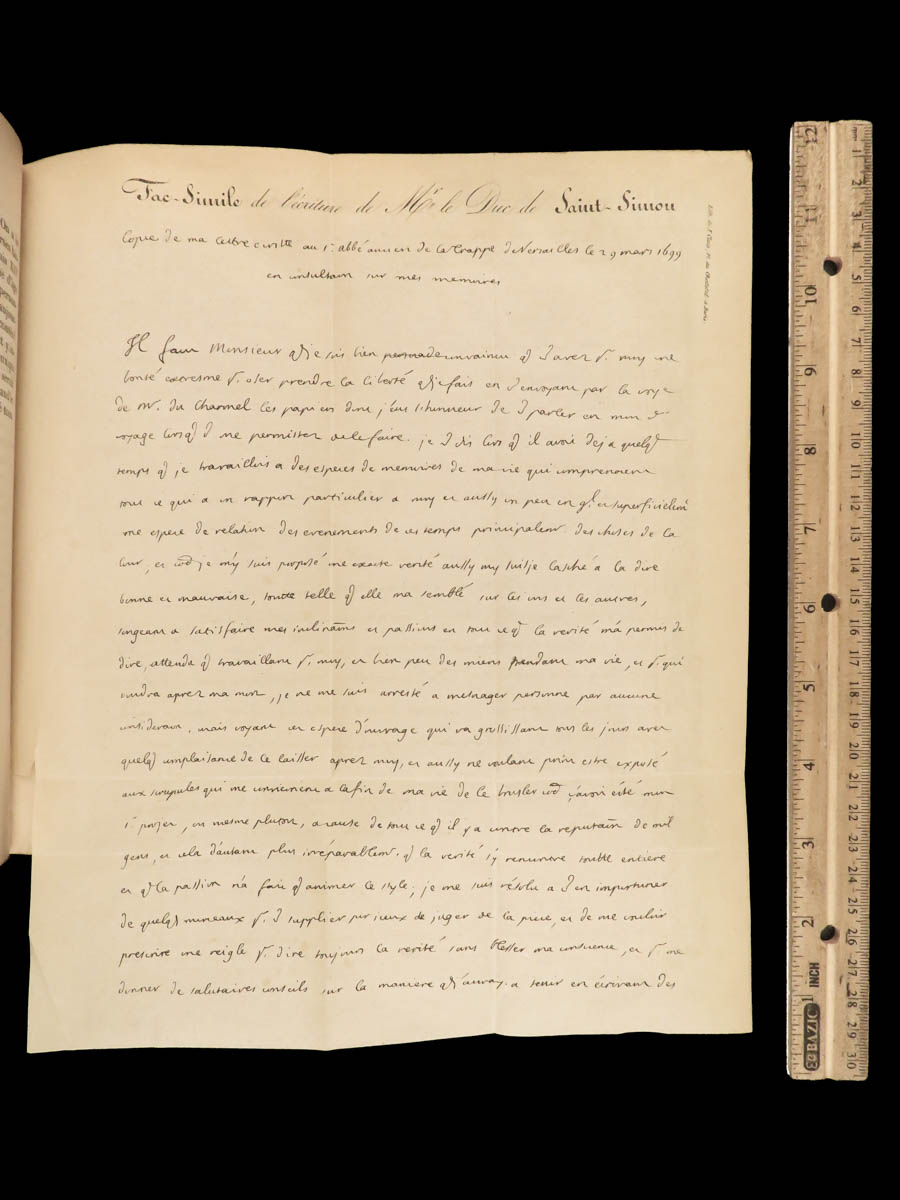 Fac-Simile de l'écriture de Mr. le Duc de Saint-Simon
Copie de ma lettre escritte au Sr. abbé ancien de la Trappe de Versailles le 29 mars 1699
en consultation sur mes memoires
Il faut Monsieur qe je sois bien convaincu qe avez pr. moy une
bonté extresme pr. oser prendre la liberté qe je fais en envoyant par la voye
de Mr. du Charmel les papiers dont j'eus l'honneur de parler en mon
voyage lors qe me permistes de le faire. je dis lors qe il avoit desja quelqe
temps qe je travaillois a des especes de memoires de ma vie qui comprenoient
tout ce qui a un rapport particulier a moy et aussy un peu en gl. et superficielemt
une espece de relation des evenements de ces temps principalemt. des choses de la
Cour, et je m'y suis proposé une exacte verité aussy my suis je lasché a la dire
bonne et mauvaise, toutte telle qe elle ma semblé sur les uns et les autres,
songeant a satisfaire mes inclinaons et passions en tout ce qe la verité m'a permis de
dire, attendu qe travaillant pr. moy, et bien peu des miens pendant ma vie, et pr. qui
voudra apres ma mort, je ne me suis arresté a mesnager personne par aucune
consideraon, mais voyant cet espece d'ouvrage qui va grossissant tous les jours avec
quelqe complaisance de le laisser apres moy, et aussy ne voulant point estre exposé
aux scrupules qui me convieroient a la fin de ma vie de le brusler
projet, ou mesme plustost, a cause de tout ce qe il y a contre la reputaon de mil
gens, et cela d'autant plus irréparablemt. qe la verité s'y rencontre toutte entiere
et qe la passion n'a fait qe animer le style, je me suis résolu a en importuner
de quelqes morceaux pr. supplier par iceux de juger de la piece, et de me vouloir
prescrire une reigle pr. dire toujours la verité sans blesser ma conscience, et pr. me
donner de salutaires conseils sur la maniere qe j'auray a tenir en écrivant des
BAZIC
INCH
1 2 3 4 5 6 7 8 9 10 11 12
1 2 3 4 5 6 7 8 9 10 11 12 13 14 15 16 17 18 19 20 21 22 23 24 25 26 27 28 29 30